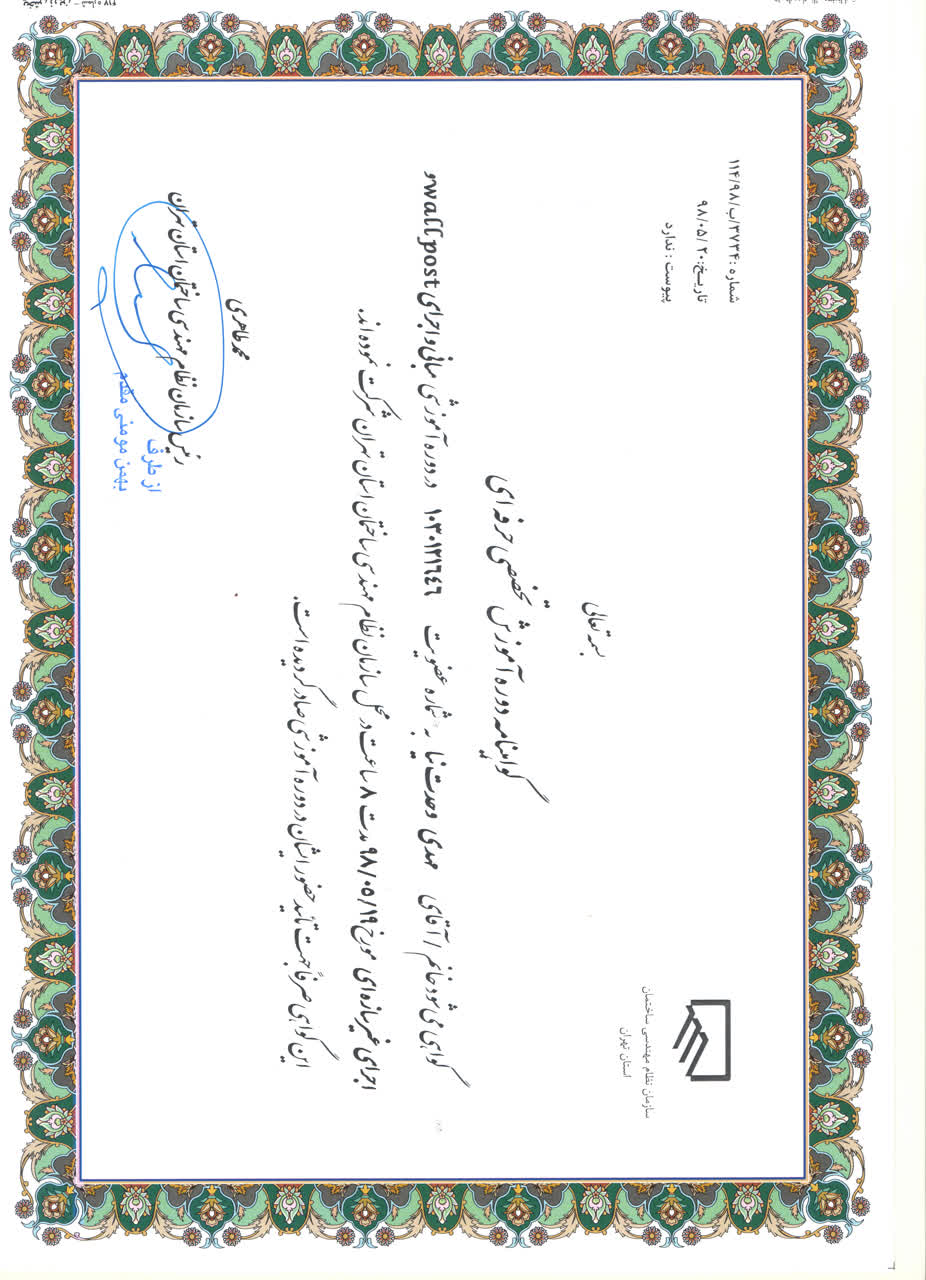 شماره :۱۱۴/۹۸/ب/۳۷۳۴
تاریخ:۹۸/۰۵/۲۰
پیوست : ندارد
سازمان نظام مهندسی ساختمان
استان تهران
بسمه تعالی
گواهینامه دوره آموزش تخصصی حرفه ای
گواهی می شود خانم / آقای مهدی وحدت نیا به شماره عضویت ۱۰۳۰۱۲۱۶۴۶ در دوره آموزشی مبانی و اجرای wall post و
اجرای غیرسازه ای مورخ ۹۸/۰۵/۱۹ مدت ۸ ساعت در محل سازمان نظام مهندسی ساختمان استان تهران شرکت نموده اند.
این گواهی صرفاً جهت تأیید حضور ایشان در دوره آموزشی صادر گردیده است.
محمد طاهری
رئیس سازمان نظام مهندسی ساختمان استان تهران
از طرف
بهمن مومنی مقدم